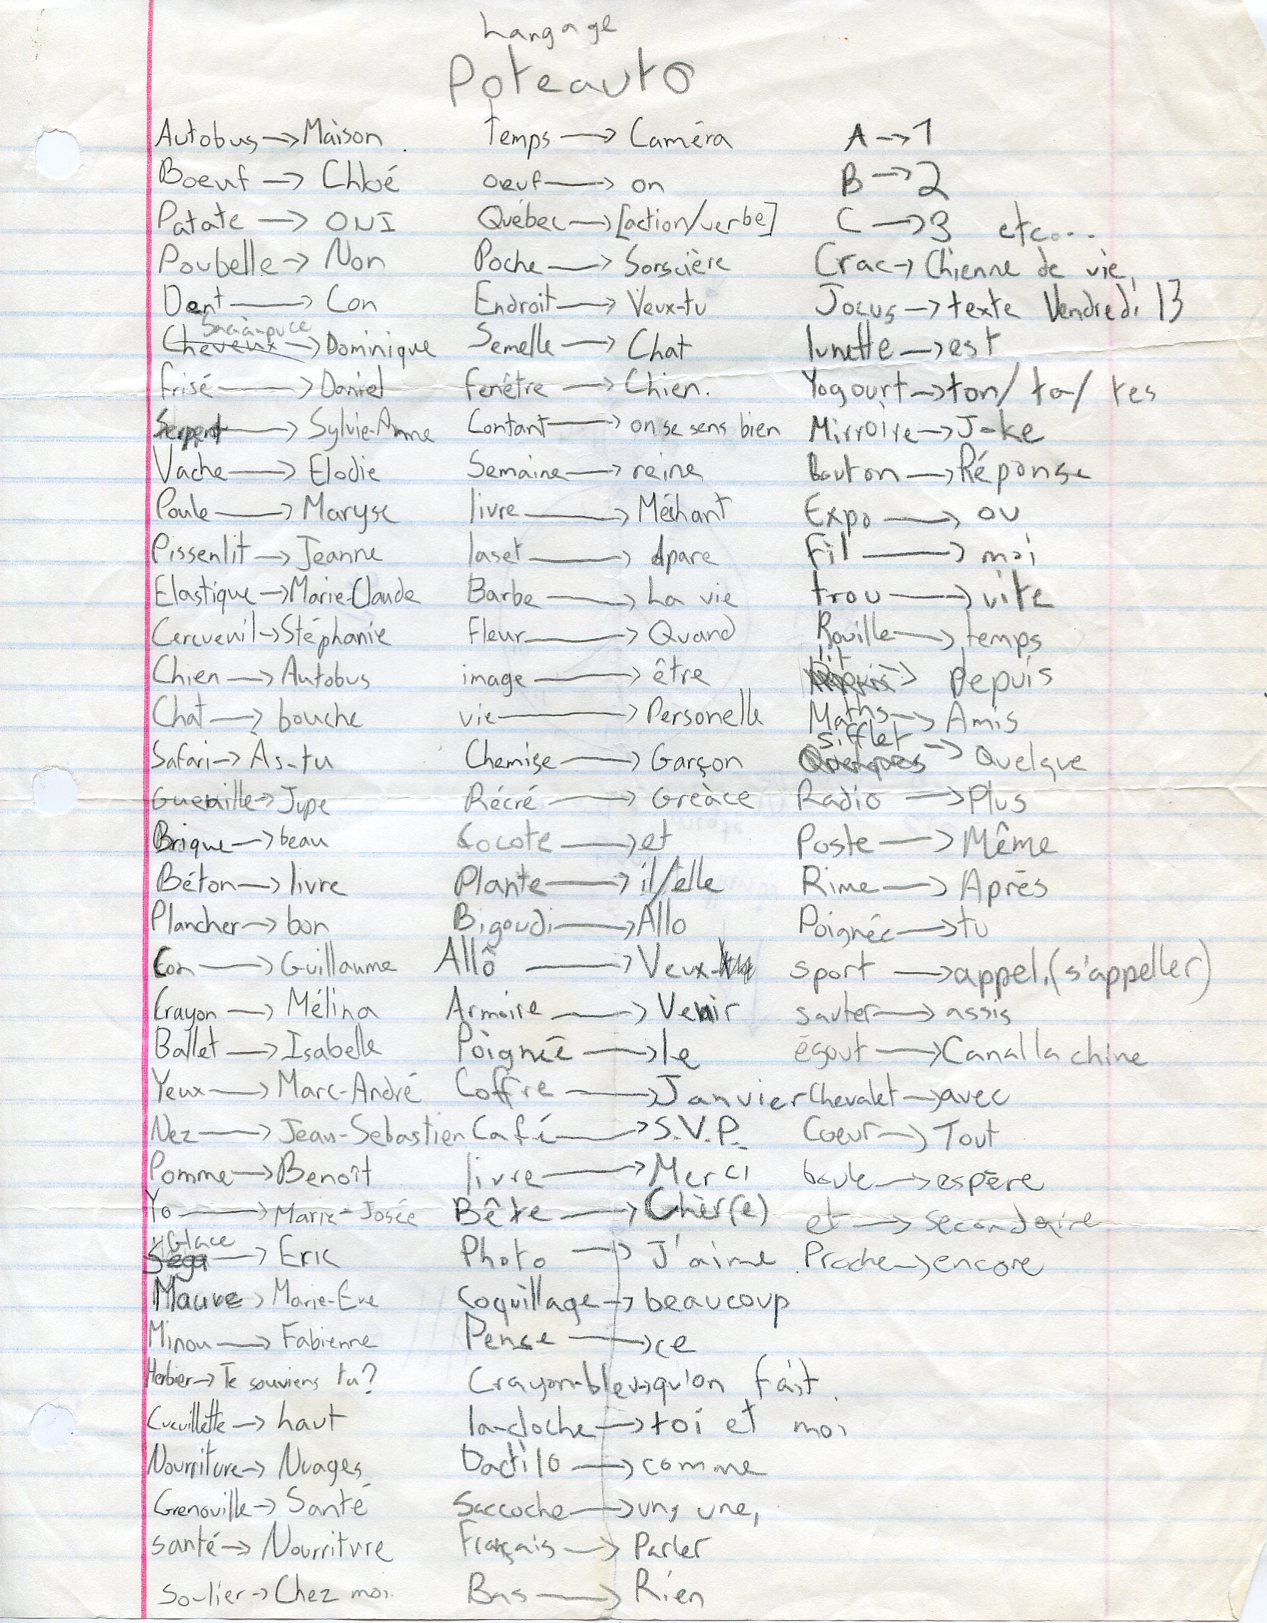 Langage
Poteauto
Autobus → Maison
Boeuf → Chloé
Patate → OUI
Poubelle → Non
Dent → Con
Sac-à-puce
Cheveux → Dominique
Frisé → Daniel
Serpent → Sylvie-Anne
Vache → Elodie
Poule → Maryse
Pissenlit → Jeanne
Elastique → Marie-Claude
Cercueuil → Stéphanie
Chien → Autobus
Chat → bouche
Safari → As-tu
Guenille → Jupe
Brique → beau
Béton → livre
Plancher → bon
Con → Guillaume
Crayon → Mélina
Ballet → Isabelle
Yeux → Marc-André
Nez → Jean-Sebastien
Pomme → Benoît
Yo → Marie-Josée
Glace
Séga → Eric
Mauve → Marie-Eve
Minou → Fabienne
Herbier → Te souviens tu?
Cueuillette → haut
Nourriture → Nuages
Grenouille → Santé
santé → Nourriture
Soulier → Chez moi
Temps → Caméra
oeuf → on
Québec → [action/verbe]
Poche → Sorscière
Endroit → Veux-tu
Semelle → Chat
Fenêtre → Chien.
Contant → on se sens bien
Semaine → reine
livre → Méchant
laset → dpare
Barbe → La vie
Fleur → Quand
image → être
vie → Personelle
Chemise → Garçon
Récré → Greàce
Cocote → et
Plante → il/elle
Bigoudi → Allo
Allô → Veux-
Armoire → Venir
Poignée → le
Coffre → Janvier
Café → S.V.P.
livre → Merci
Bête → Chèr(e)
Photo → J'aime
Coquillage → beaucoup
Pense → ce
Crayon-bleu → qu'on fait.
la-cloche → toi et moi
Dactilo → comme
Saccoche → un, une,
Français → Parler
Bas → Rien
A → 1
B → 2
C → 3 etc...
Crac → Chienne de vie,
Jocus → texte Vendredi 13
lunette → est
Yogourt → ton/ ta/ tes
Mirroire → J-ke
Bouton → Réponse
Expo → ou
Fil → moi
trou → vite
Rouille → temps
lit
→ Depuis
Maths → Amis
Sifflet
Quelques → Quelque
Radio → Plus
Poste → Même
Rime → Après
Poignée → tu
sport → appel, (s'appeller)
sauter → assis
égout → Canal la chine
Chevalet → avec
Coeur → Tout
boule → espère
et → secondaire
Proche → encore